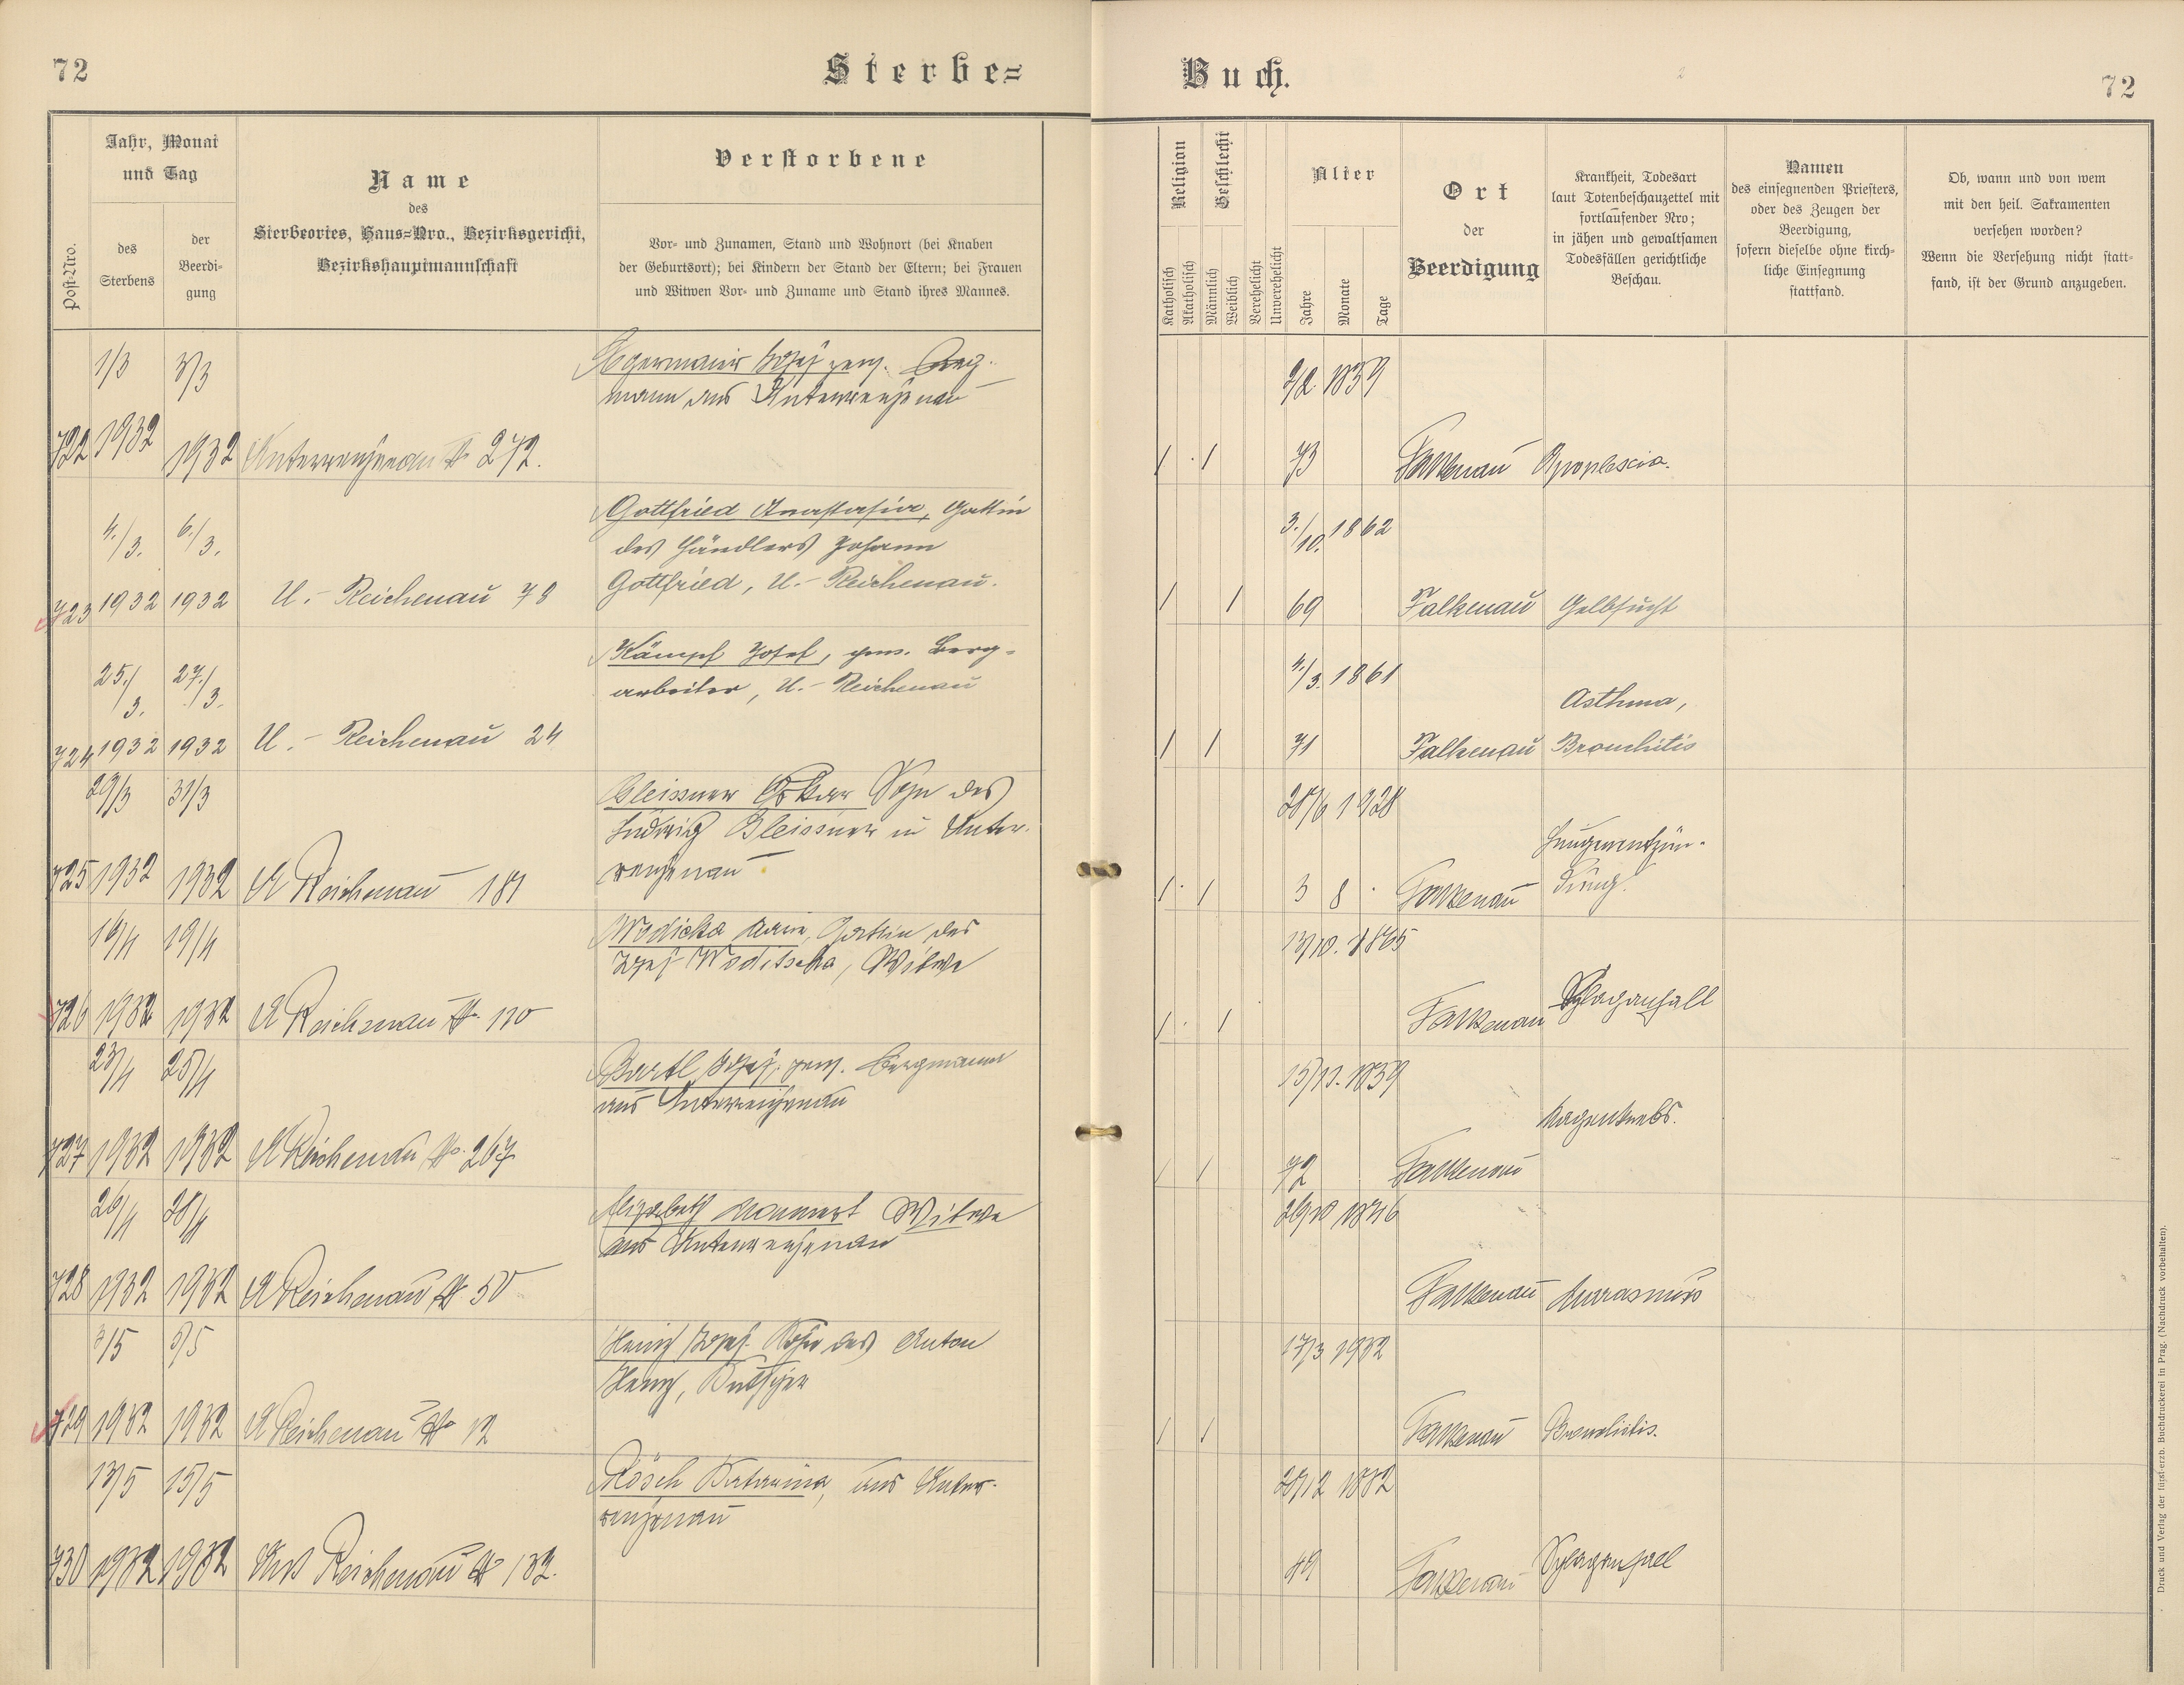 72
Sterbe=
Buch.
72
Post-Nro.
Jahr, Monat
und Tag
des
Sterbens
der
Beerdi-
gung
Name
des
Sterbeortes, Haus=Nro., Bezirksgericht,
Bezirkshauptmannschaft
Verstorbene
Vor- und Zunamen, Stand und Wohnort (bei Knaben
der Geburtsort); bei Kindern der Stand der Eltern; bei Frauen
und Witwen Vor- und Zuname und Stand ihres Mannes.
Religion
Katholisch
Akatholisch
Geschlecht
Männlich
Weiblich
Verehelicht
Unverehelicht
Alter
Jahre
Monate
Tage
Ort
der
Beerdigung
Krankheit, Todesart
laut Totenbeschauzettel mit
fortlaufender Nro;
in jähen und gewaltsamen
Todesfällen gerichtliche
Beschau.
Namen
des einsegnenden Priesters,
oder des Zeugen der
Beerdigung,
sofern dieselbe ohne kirch-
liche Einsegnung
stattfand.
Ob, wann und von wem
mit den heil. Sakramenten
versehen worden?
Wenn die Versehung nicht statt-
fand, ist der Grund anzugeben.
1/3 3/3 Josef pens. Berg-
mann aus Unterreichenau
1859
722 1932 1932 Unterreichenau No 272.
/ / 73 Falkenau Apoplexia.
4./3. 6./3. Gottfried Anastasia, Gattin
des Händlers Johann
Gottfried, U.- Reichenau.
3./10. 1862
723 1932 1932 U.- Reichenau 78
/ / 69 Falkenau Gelbsucht
25./3. 27./3. Kämpf Josef, pens. Berg-
arbeiter, U.- Reichenau
4./3. 1861
724 1932 1932 U.- Reichenau 24
/ / 71 Falkenau Asthma,
Bronchitis
29/3 31/3 Gleissner Oskar Sohn des
Ludwig Gleissner in Unter-
reichenau
28/6 1928
725 1932 1932 U Reichenau 181
/ / 3 8 Falkenau Lungenentzün-
dung.
16/4 19/4 Wodicka Marie, Gattin des
Josef Woditschka, Witwe
13/10. 1865
726 1932 1932 U Reichenau No. 110
/ / Falkenau Schlaganfall
23/4 25/4 Bartl Josef, pens. Bergmann
aus Unterreichenau
15/11. 1859
727 1932 1932 U Reichenau No. 267
/ / 72 Falkenau Magenkrebs.
26/4 28/4 Elisabeth Witwe
aus Unterreichenau
1846
728 1932 1932 U Reichenau No 50
Falkenau Marasmus
3/5 5/5 Josef Sohn des Anton
17/3 1932
729 1932 1932 U Reichenau No 12
/ / Falkenau Bronchitis.
13/5 15/5 Rösch Katarina, aus Unter-
reichenau
28/12 1882
730 1932 1932 Unt Reichenau No 132.
49 Falkenau Schlaganfall
Druck und Verlag der fürst-erzb. Buchdruckerei in Prag. (Nachdruck vorbehalten).